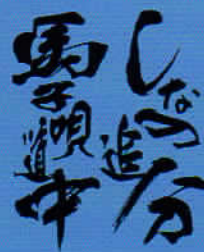 しなの追分
馬子唄道中